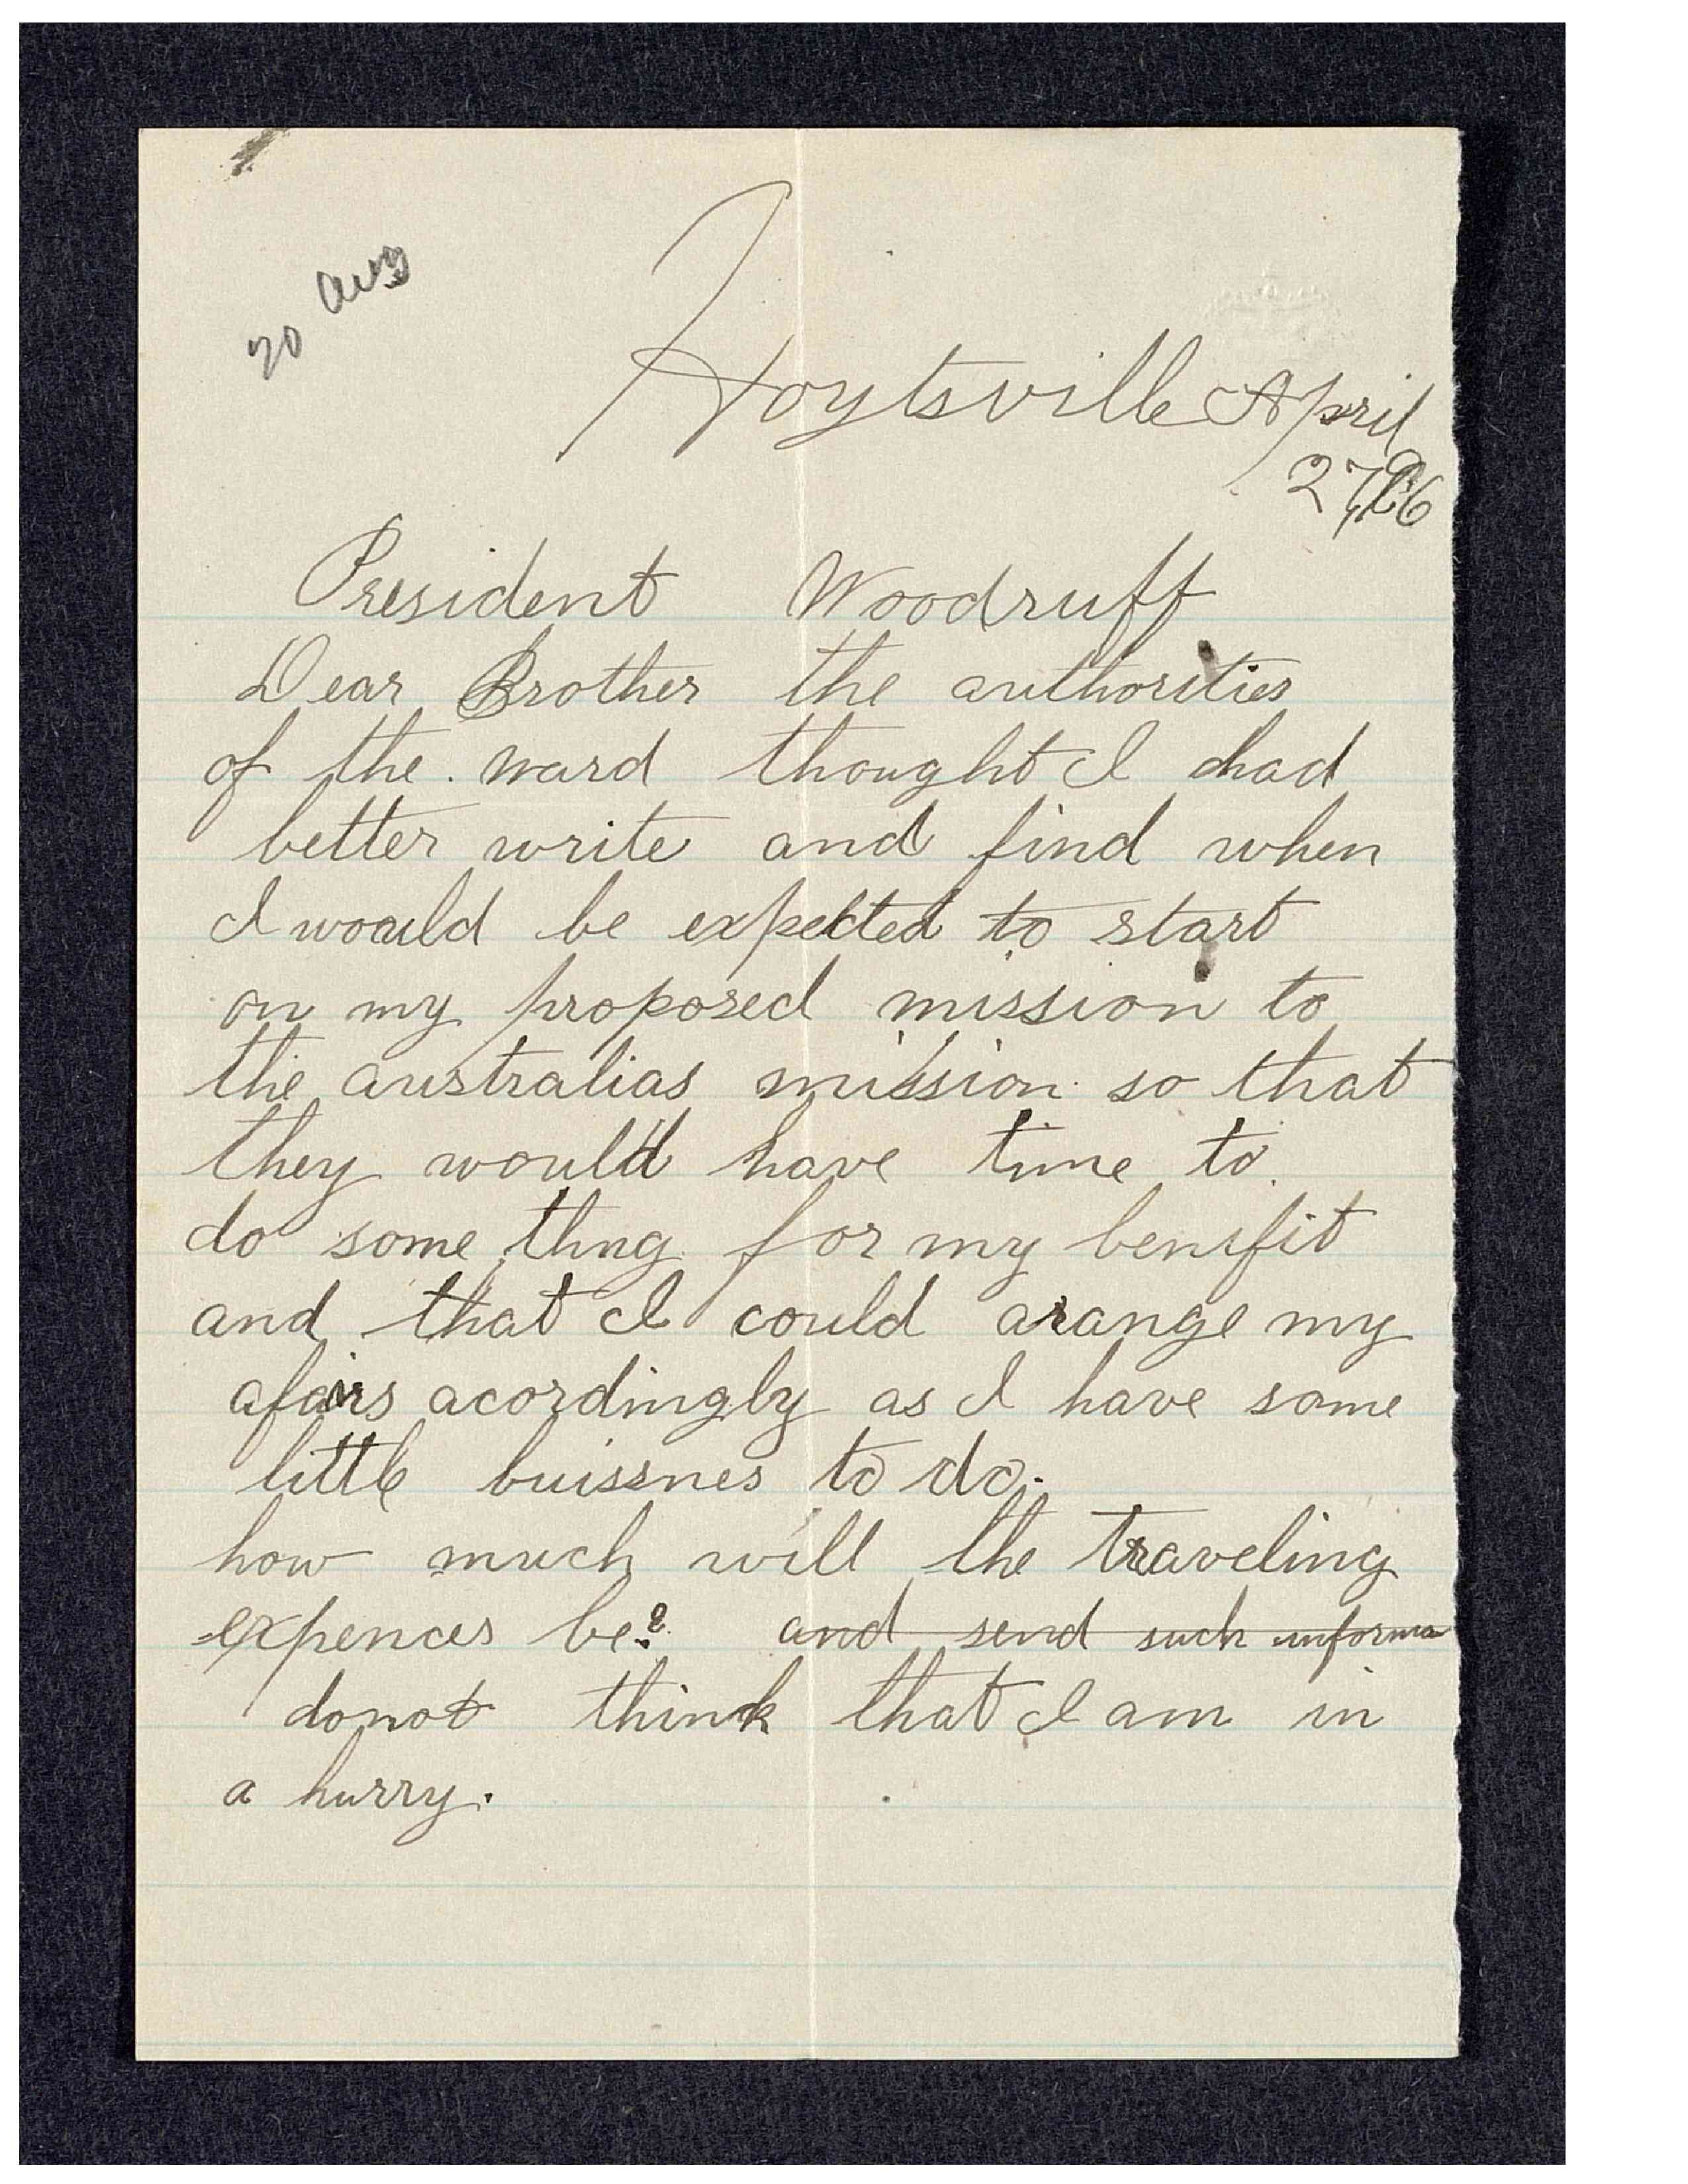 20 Aug
Hoytsville April
27, 96
President Woodruff
Dear Brother the authorities
of the ward thought I had
better write and find when
I would be expected to start
on my proposed mission to
the australias mission so that
they would have time to
do some thng for my benifit
and that I could arange my
afairs acordingly as I have some
little buissnes to do.
how much will the traveling
expences be? and send such informa
donot think that I am in
a hurry.